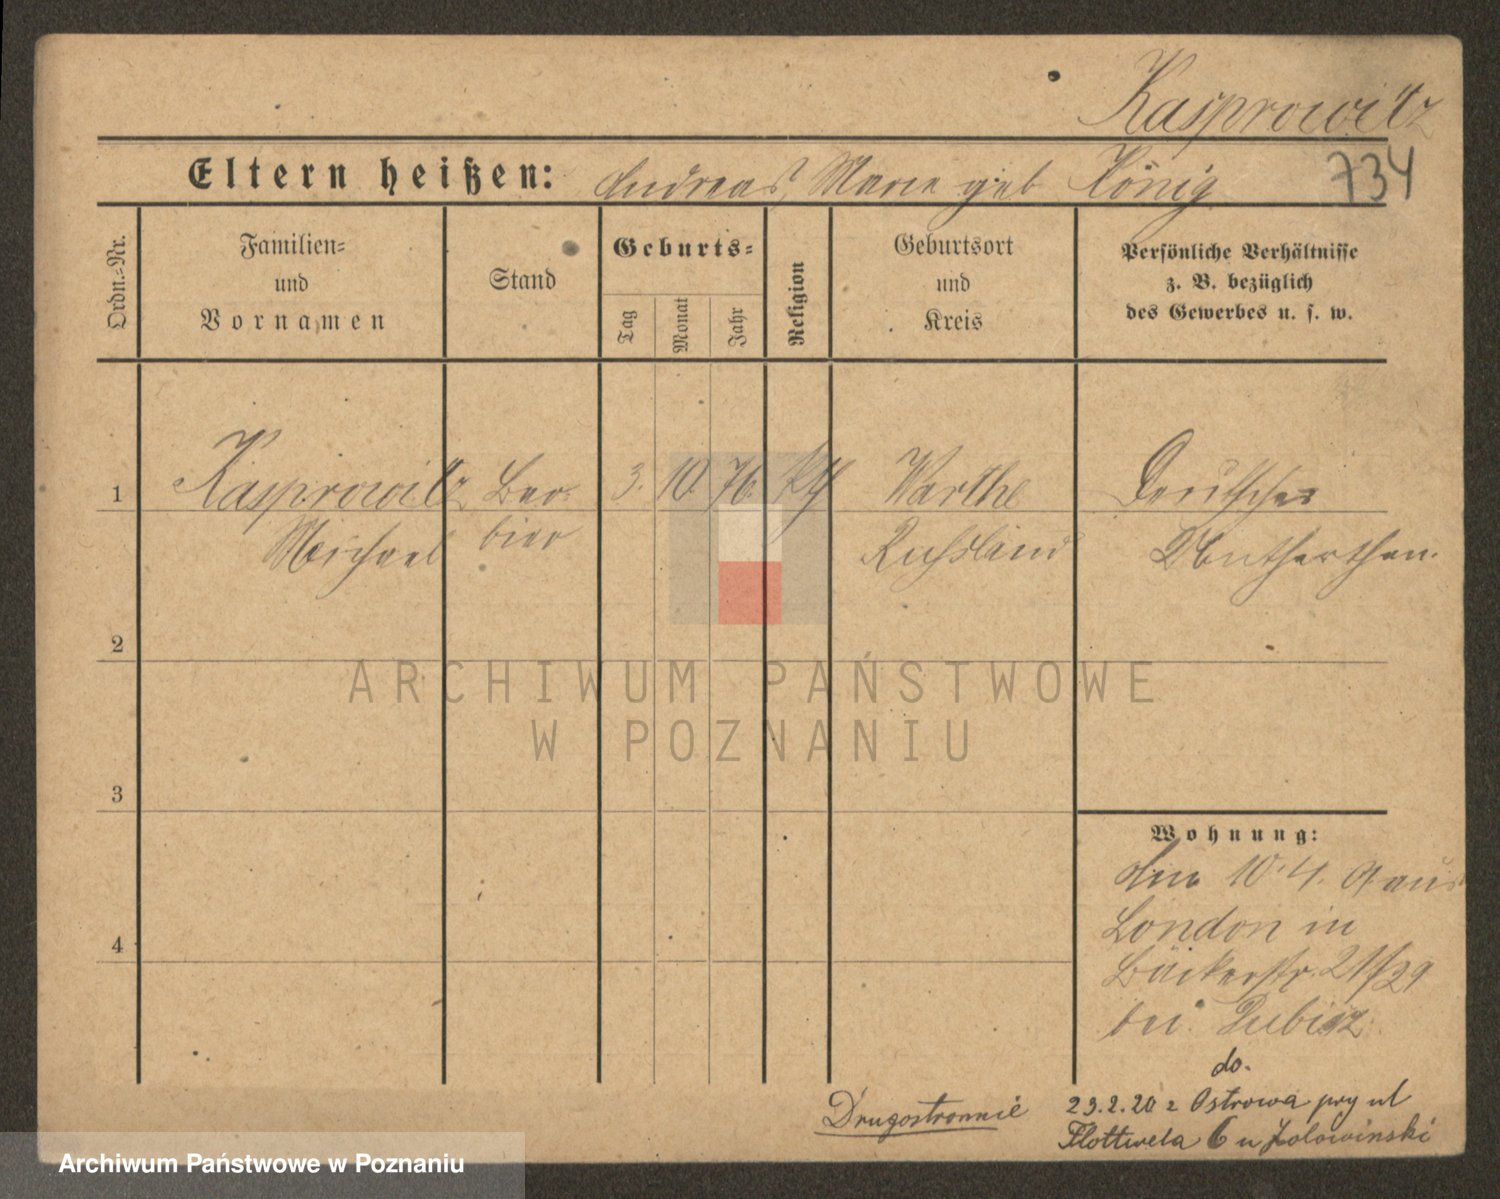 Kasprowitz
Eltern heißen: Andreas, Marie geb König
734
Ordn.-Nr.
Familien-
und
Vornamen
Stand
Geburts-
Tag
Monat
Jahr
Religion
Geburtsort
und
Kreis
Persönliche Verhältnisse
z. B. bezüglich
des Gewerbes u. s. w.
1
Kasprowitz
Michael
Bar-
bier
3. 10. 76. kth
Warthe
Russland
Deutscher
Unterthan.
2
3
4
Wohnung:
10. 4. aus
London in
Bäckerstr. 21/29
bei
do.
Drugostronnie
23.2.20 z Ostrowa przy ul
Flottwela 6 u Zolowinski
ARCHIWUM PAŃSTWOWE
W POZNANIU
Archiwum Państwowe w Poznaniu